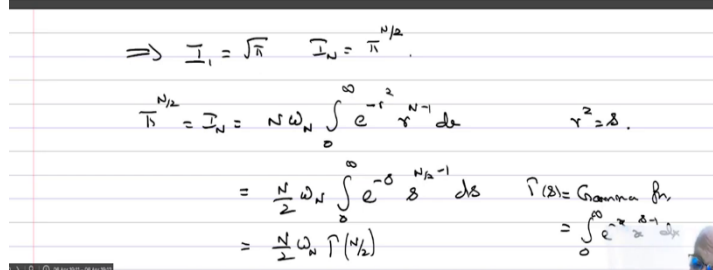 ⇒ I₁ = √π   I_N = π^{N/2}.
π^{N/2} = I_N = Nω_N ∫₀^∞ e^{-r²} r^{N-1} dr   r² = s.
= N/2 ω_N ∫₀^∞ e^{-s} s^{N/2-1} ds   Γ(s) = Gamma fn.
= N/2 ω_N Γ(N/2)   = ∫₀^∞ e^{-x} x^{s-1} dx